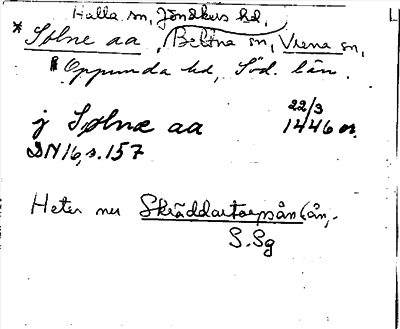 Halla sn, Jönåkers hd,
* Sølne aa, Bettna sn, Vrena sn,
Oppunda hd, Söd. län.
22/3
j Sølnæ aa 1446 or.
DN 16, s. 157
Heter nu Skräddartorpsån (ån,
S. Sg